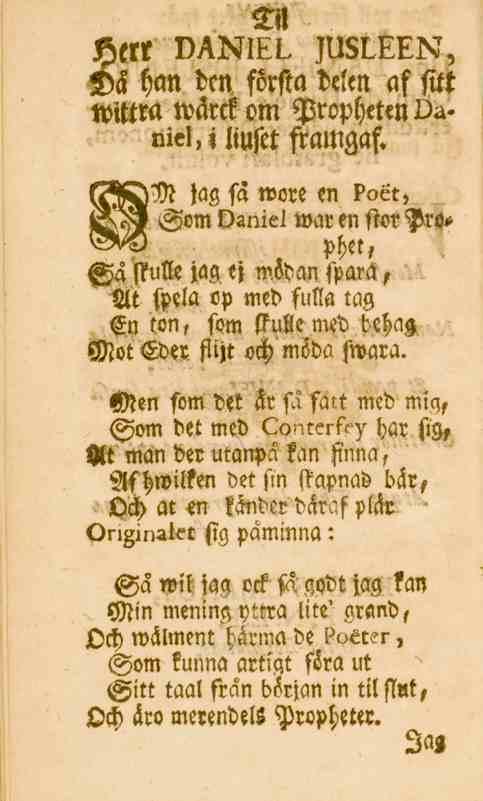 Til
Herr DANIEL JUSLEEN,
Då han den första delen af sitt
wittra wärck om Propheten Da-
niel, i liuset framgaf.
OM jag så wore en Poët,
Som Daniel war en stor Pro-
phet,
Så skulle jag ej mödan spara,
At spela op med fulla tag
En ton, som skulle med behag
Mot Eder flijt och möda swara.
Men som det är så fatt med mig,
Som det med Conterfey har sig,
At man der utanpå kan finna,
Af hwilken det sin skapnad bär,
Och at en känder däraf plär
Originalet sig påminna:
Så wil jag ock så godt jag kan
Min mening yttra lite' grand,
Och wälment härma de Poëter,
Som kunna artigt föra ut
Sitt taal från början in til slut,
Och äro merendels Propheter.
Jag